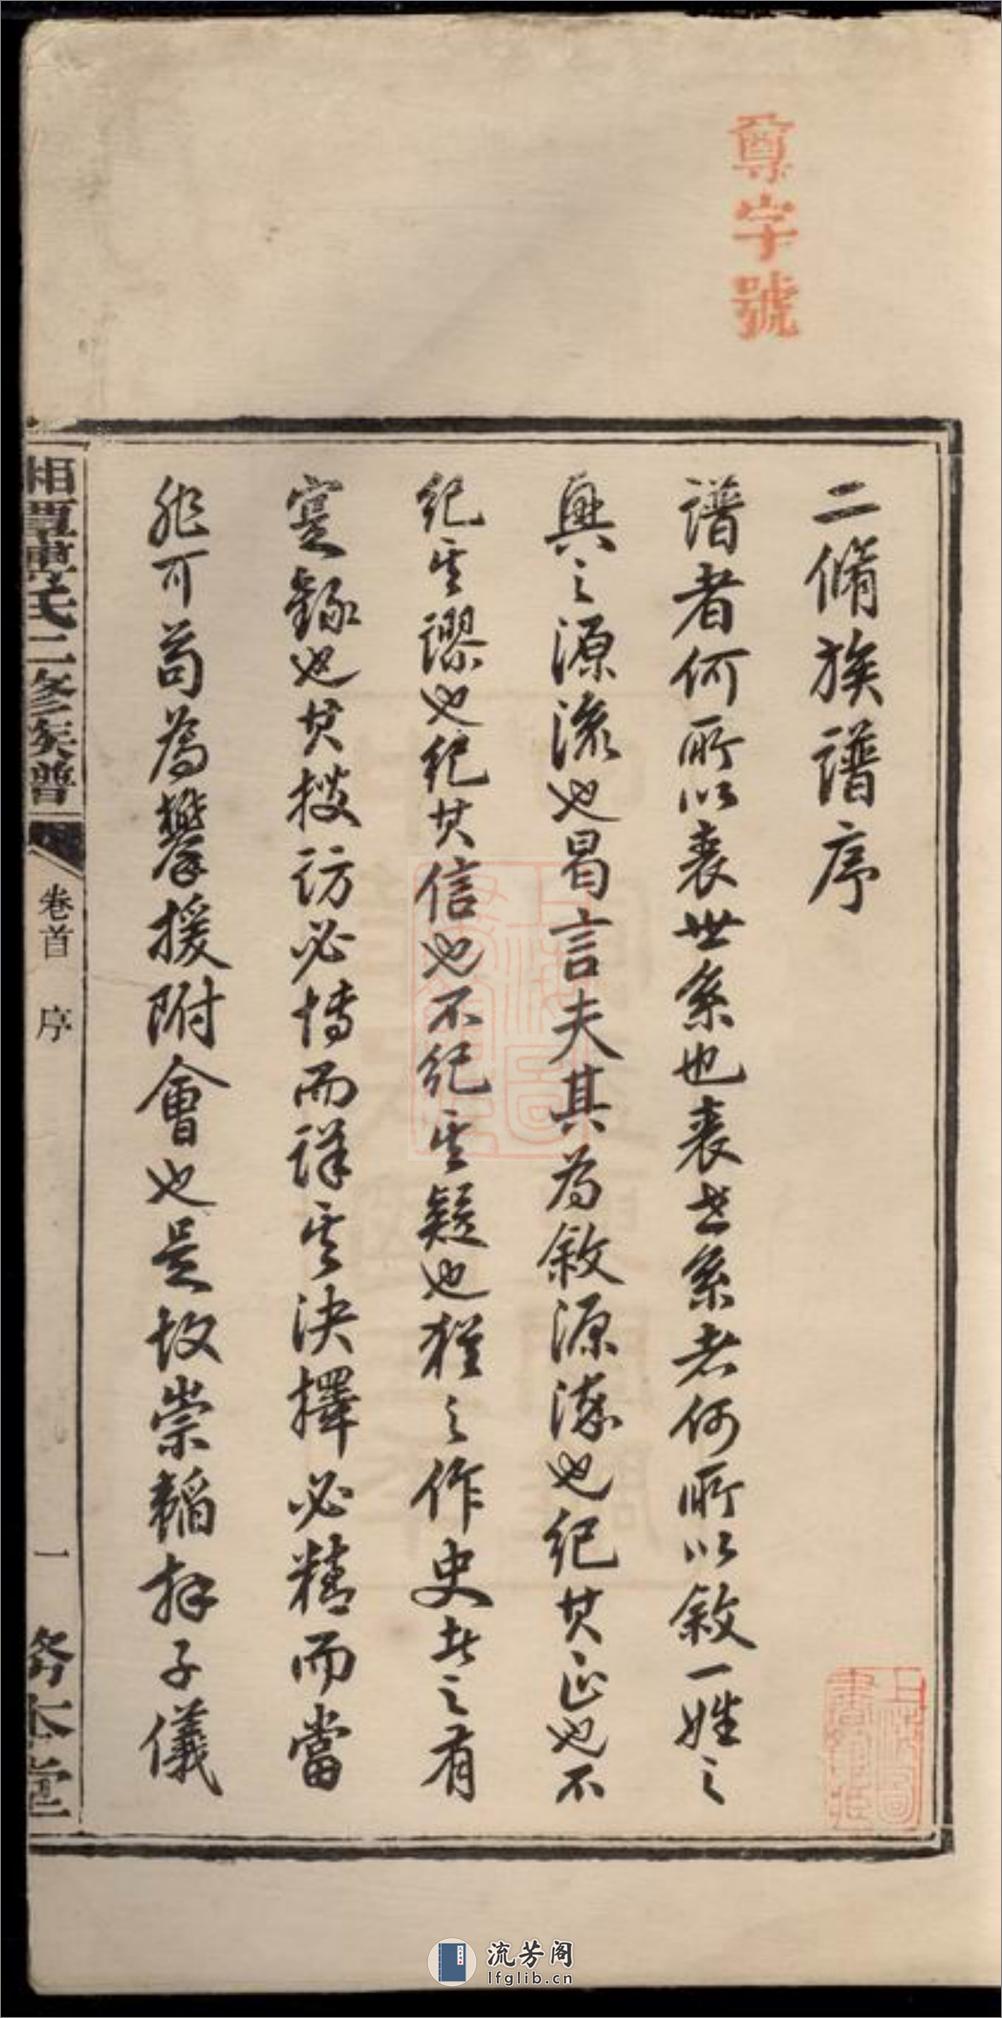 尊字號
二脩族譜序
譜者何所以表世系也表世系者何所以敘一姓之
興之源流也曷言夫其為敘源流也紀其正也不
紀其謬也紀其信也不紀其疑也猶之作史者之有
寔錄也其搜訪必博而詳其決擇必精而當
非可苟為攀援附會也是故崇韜拜子儀
湘潭 氏二修族譜
卷首
序
一
務本堂
上海圖書館藏
流芳阁
lfglib.cn